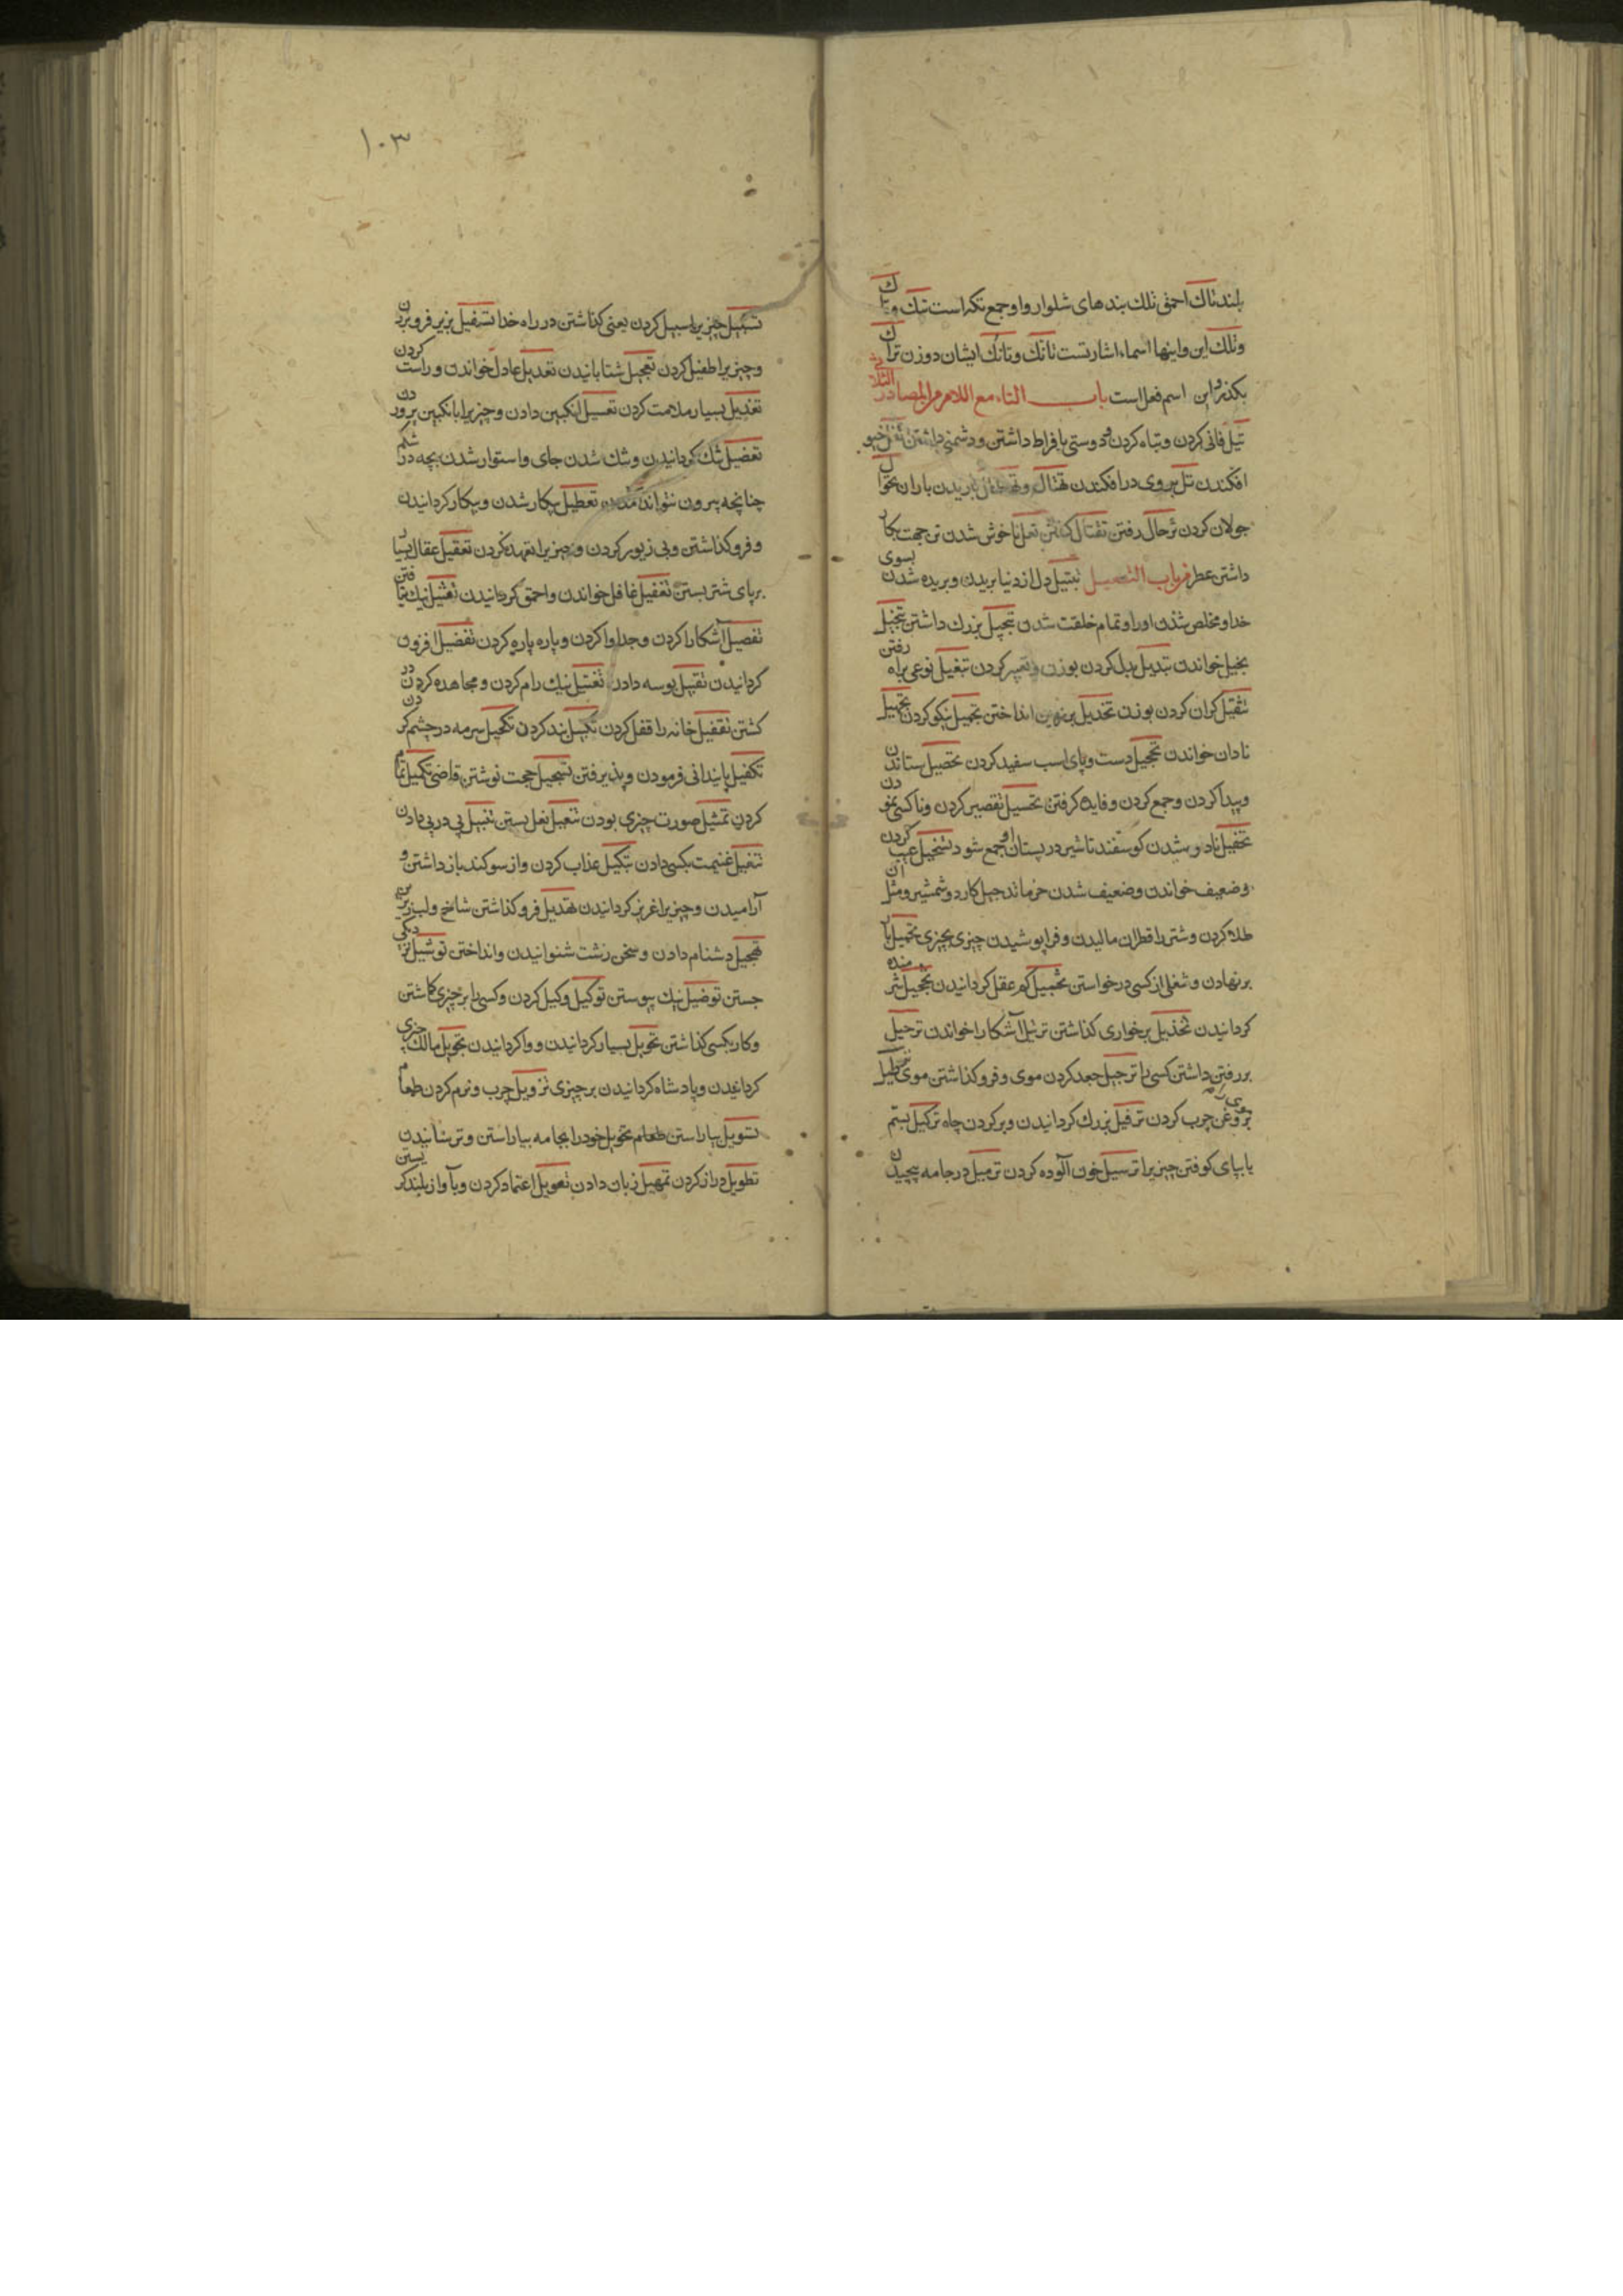 بلند تاك احمق تلك بندهای شلوار و او جمع تكه است تيك و
وتلك این واینها اسماء اشارتست تانك وتانك ایشان دوزن ترا ك
بكذر و این اسم فعل است باب التاء مع اللام من المصادر الثلاثی
تبل فانی کردن وتباه کردن و دوستی بافراط داشتن ودشمنی داشتن تفل خیو
افكندن تل بروی در افكندن تهتال باریدن باران تجوال
جولان کردن ترحال رفتن تقتال كشتن تعل ناخوش شدن ترجمت بكار
داشتن عطر من باب التفعیل تبتیل دل از دنیا بریدن وبریده شدن بسوی
خدا و مخلص شدن او را و تمام خلقت شدن تبجیل بزرك داشتن تبخیل
بخیل خواندن تبدیل بدل کردن بوزن وتغییر کردن تبغیل نوعی براه رفتن
تثقیل کران کردن بوزن تجدیل بر زمین انداختن تجمیل نیکو کردن تجهیل
نادان خواندن تحجیل دست وپای اسب سفید کردن تحصیل ستاندن
وپیدا کردن وجمع کردن وفایده کرفتن تحسیل تقصیر کردن وناکسی نمودن
تحفیل نادوشدن کوسفند تا شیر در پستان او جمع شود تسخیل عیب کردن
وضعیف خواندن وضعیف شدن خرما تدجیل کارد وشمشیر ومثل آن
طلا کردن وشتر را قطران مالیدن وفراپوشیدن چیزی بچیزی تحمیل بار
بر نهادن وشغلی از کسی درخواستن تخبیل کم عقل کردانیدن تخجیل شرمنده
کردانیدن تخذیل برخواری کذاشتن ترتیل آشکارا خواندن ترحیل
بر رفتن داشتن کسی را ترجیل جعد کردن موی وفرو کذاشتن موی ترطیل
بروغن چرب کردن موی را ترفیل بزرك کردانیدن وپر کردن چاه ترکیل بستم
یا بپای کوفتن چیزیرا ترسیل خون آلوده کردن ترمیل در جامه پیچیدن
۱۰۳
تسبیل چیزیرا سبیل کردن یعنی کذاشتن در راه خدا تسفیل بزیر فرو بردن
وچیزیرا طفیل کردن تعجیل شتابانیدن تعدیل عادل خواندن وراست کردن
تعذیل بسیار ملامت کردن تعسیل انکبین دادن وچیزیرا بانکبین پروردن
تعضیل تنك کردانیدن وتنك شدن جای واستوار شدن بچه در شکم
چنانچه بیرون نتواند آمدن تعطیل بیکار شدن وبیکار کردانیدن
وفرو کذاشتن وبی زیور کردن وچیزیرا تعهد نکردن تعقیل عقال بسیار
بر پای شتر بستن تغفیل غافل خواندن واحمق کردانیدن تفتیل نیك تافتن
تفصیل آشکارا کردن وجدا وا کردن وپاره پاره کردن تفضیل افزون
کردانیدن تقبیل بوسه دادن تقتیل نیك رام کردن ومجاهده کردن در
کشتن تقفیل خانه را قفل کردن تکبیل بند کردن تکحیل سرمه در چشم کردن
تکفیل پایندانی فرمودن وپذیرفتن تسجیل حجت نوشتن قاضی تکمیل تمام
کردن تمثیل صورت چیزی بودن تنعیل نعل بستن تنبیل پی در پی دادن
تنفیل غنیمت بکسی دادن تنکیل عذاب کردن واز سوکند باز داشتن و
آرامیدن وچیزیرا غریز کردانیدن تهدیل فرو کذاشتن شاخ ولب زیرین
تهجیل دشنام دادن وسخن زشت شنوانیدن وانداختن توسیل نزدیکی
جستن توصیل نیك پیوستن توکیل وکیل کردن وکسی را بر چیزی کماشتن
وکار بکسی کذاشتن تحویل بسیار کردانیدن ووا کردانیدن تخویل مالك چیزی
کردانیدن وپادشاه کردانیدن بر چیزی تزویل چرب ونرم کردن طعام
تسویل بیاراستن طعام تحویل خود را بجامه بیاراستن وترسانیدن
تطویل دراز کردن تمهیل زمان دادن تعویل اعتماد کردن وبآواز بلند کریستن